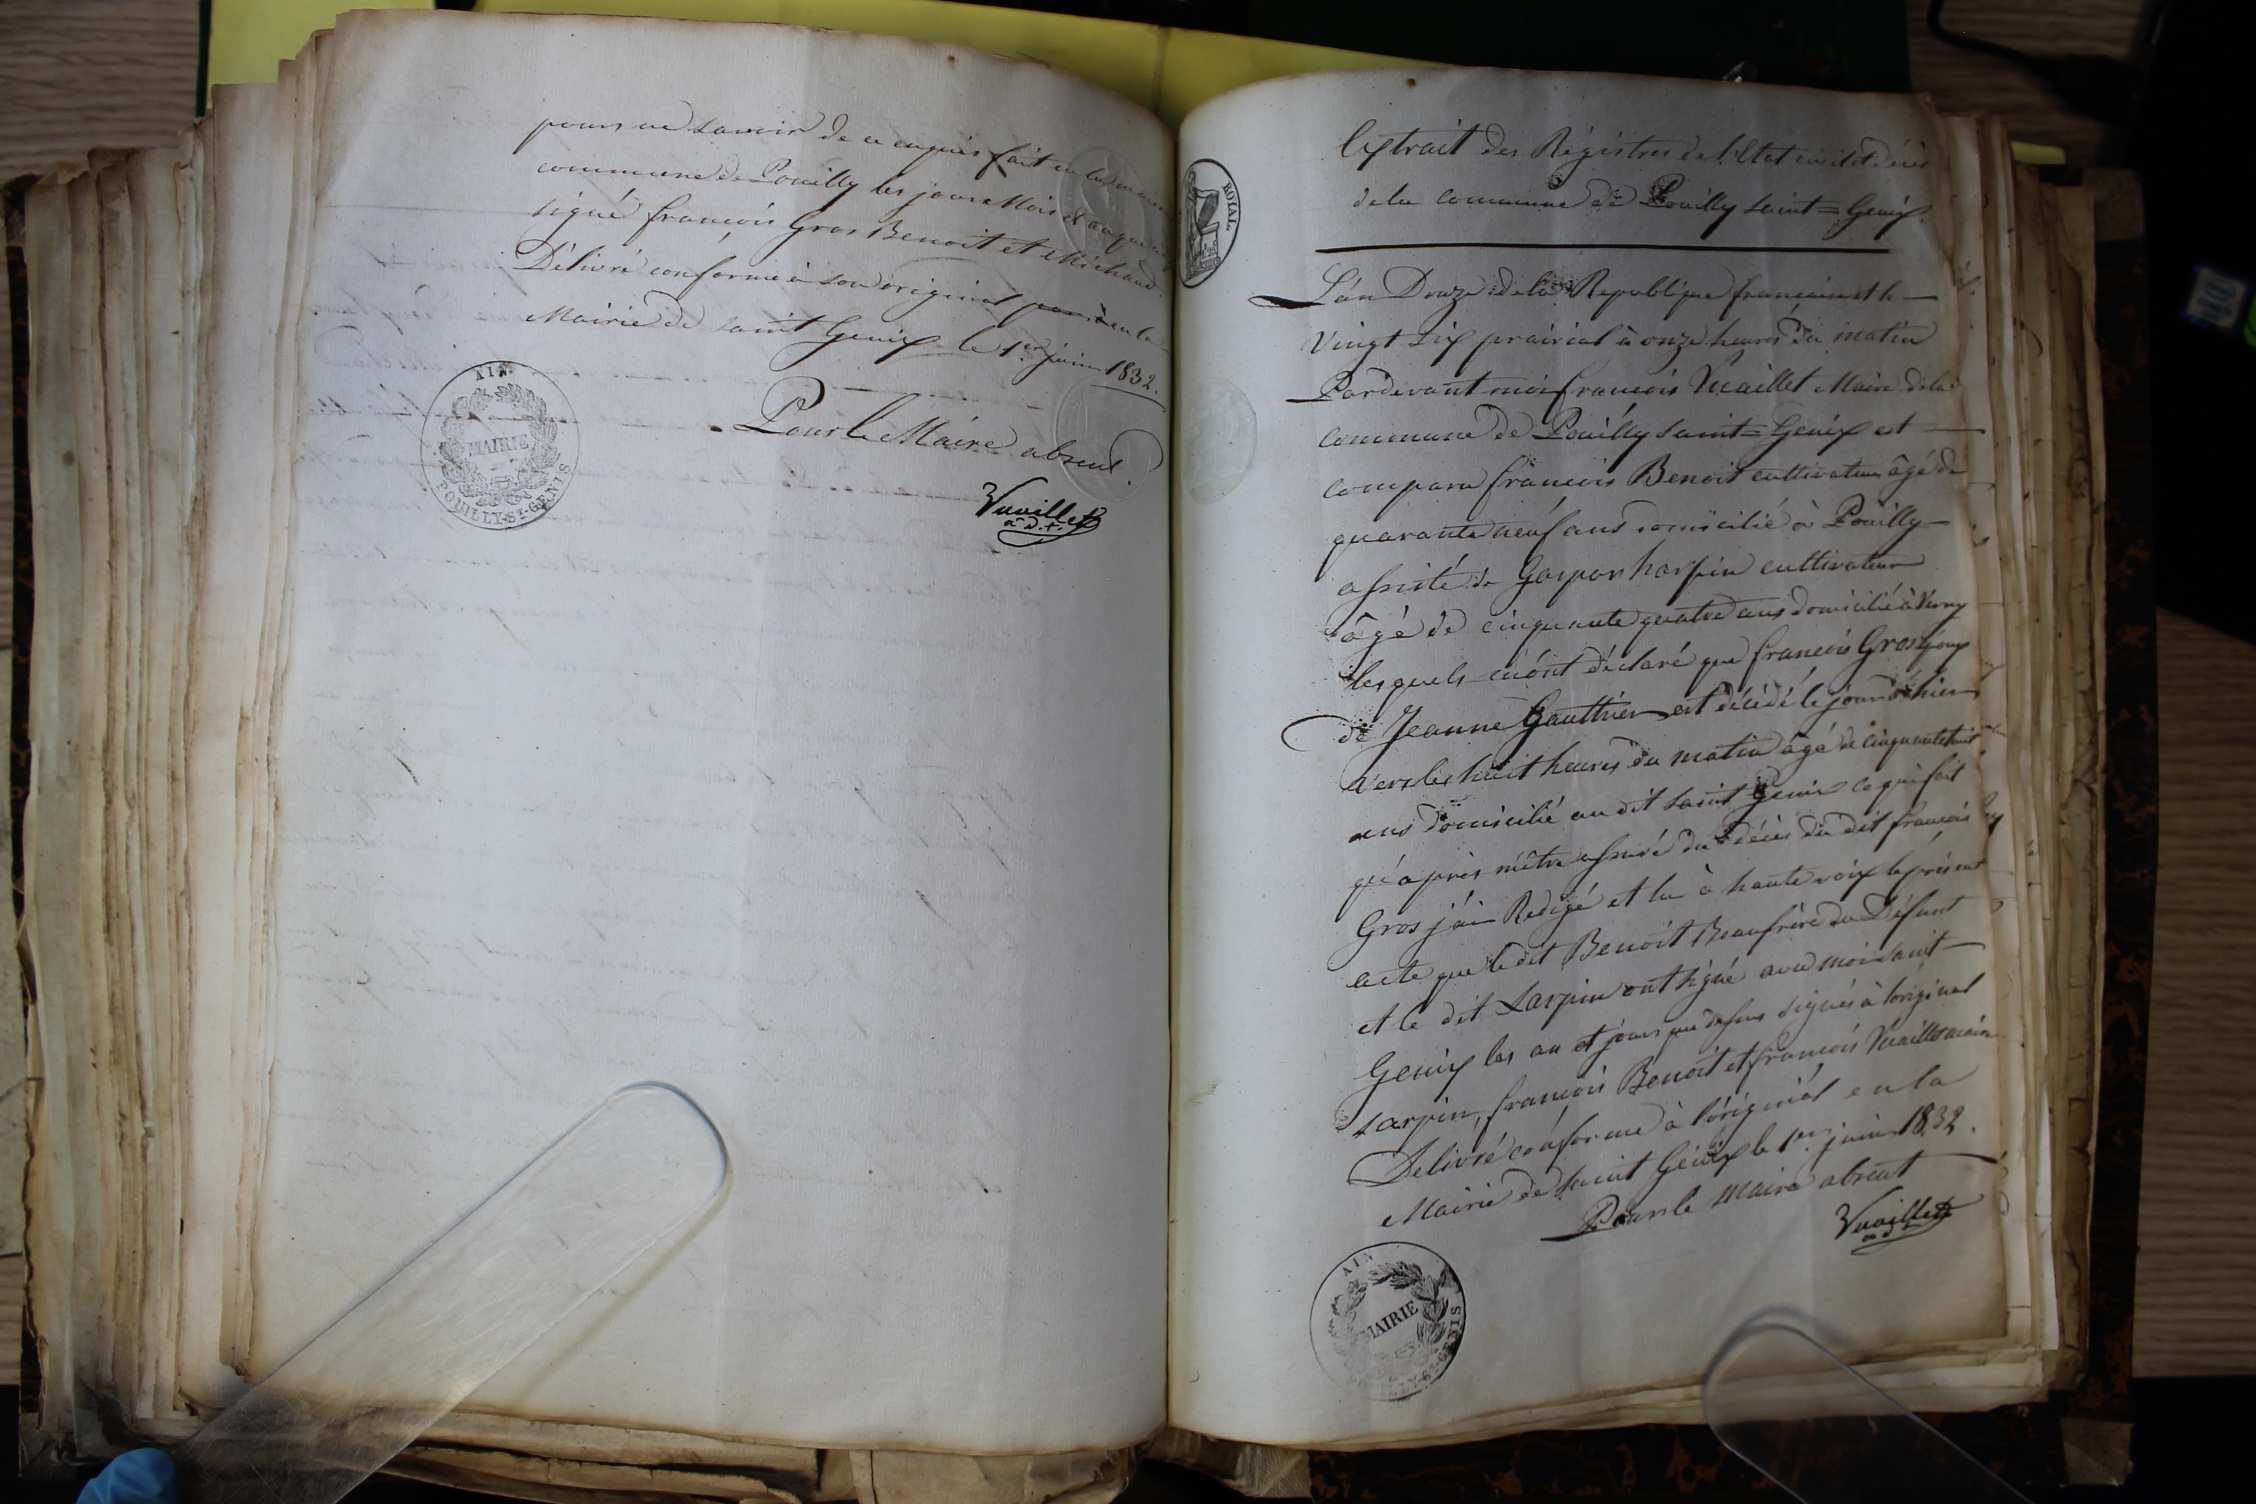 pour ne savoir de ce enquis fait en la
commune de Pouilly les jour Mois et an que
signé francois Gros Benoit et Michaud
Délivré conforme à son original en la
Mairie de saint Genix le 1er juin 1832.
Pour le Maire absent.
Vuaillet
a.d.t.
AIN
MAIRIE
POUILLY-ST-GENIS
ROYAL
Extrait des Régistres de l'Etat civil et décès
de la commune de Pouilly saint=Genix.
L'an Douze de la Republique francaise et le
vingt six prairial à onze heures du matin
Pardevant moi francois Vuaillet Maire de la
commune de Pouilly saint=Genix est
comparu francois Benoit cultivateur âgé de
quarante neuf ans domicilié à Pouilly
assisté de Gaspar harpin cultivateur
âgé de cinquante quatre ans domicilié à
lesquels m'ont déclaré que francois Grosjoux
de Jeanne Gauthier est décédé le jour d'hier
vers les huit heures du matin âgé de cinquante huit
ans domicilié au dit saint Genix ce qui fait
qu'après m'être assuré du décès du dit francois
Gros j'ai Redigé et lu à haute voix le présent
acte que le dit Benoit Beaufrère du Défunt
et le dit Sarpin ont signé avec moi saint
Genix les an et jours que dessus signés à l'original
sarpin, francois Benoit et francois Vuaillet maire
Délivré conforme à l'original en la
Mairie de saint Genix le 1er juin 1832.
Pour le maire absent
Vuaillet
AIN
MAIRIE
ST-GENIS